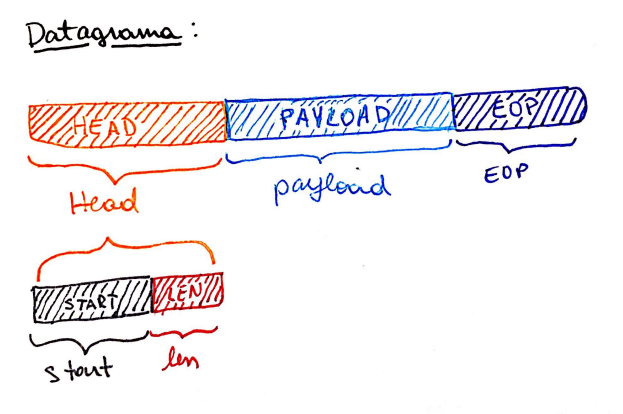 Datagrama :
HEAD PAYLOAD EOP
Head payload EOP
START LEN
start len